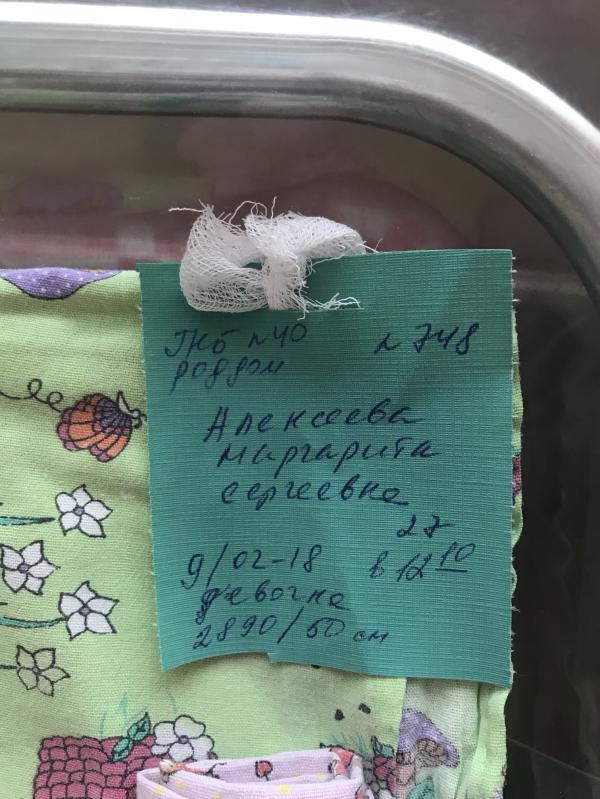 ГКБ №40 №748
роддом
Алексеева
Маргарита
Сергеевна
27
9/02-18 в 12 10
девочка
2890/50 см